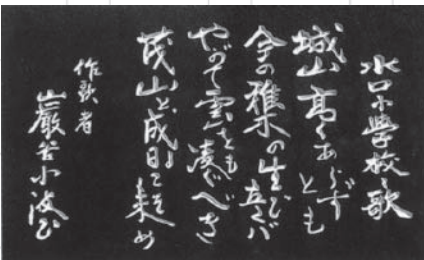 水口小學校之歌
城山高くあらずとも
今の稚木の生ひ立たバ
やがて雲をも凌ぐべき
茂山と成る日こそ来め
作歌者
巌谷小波